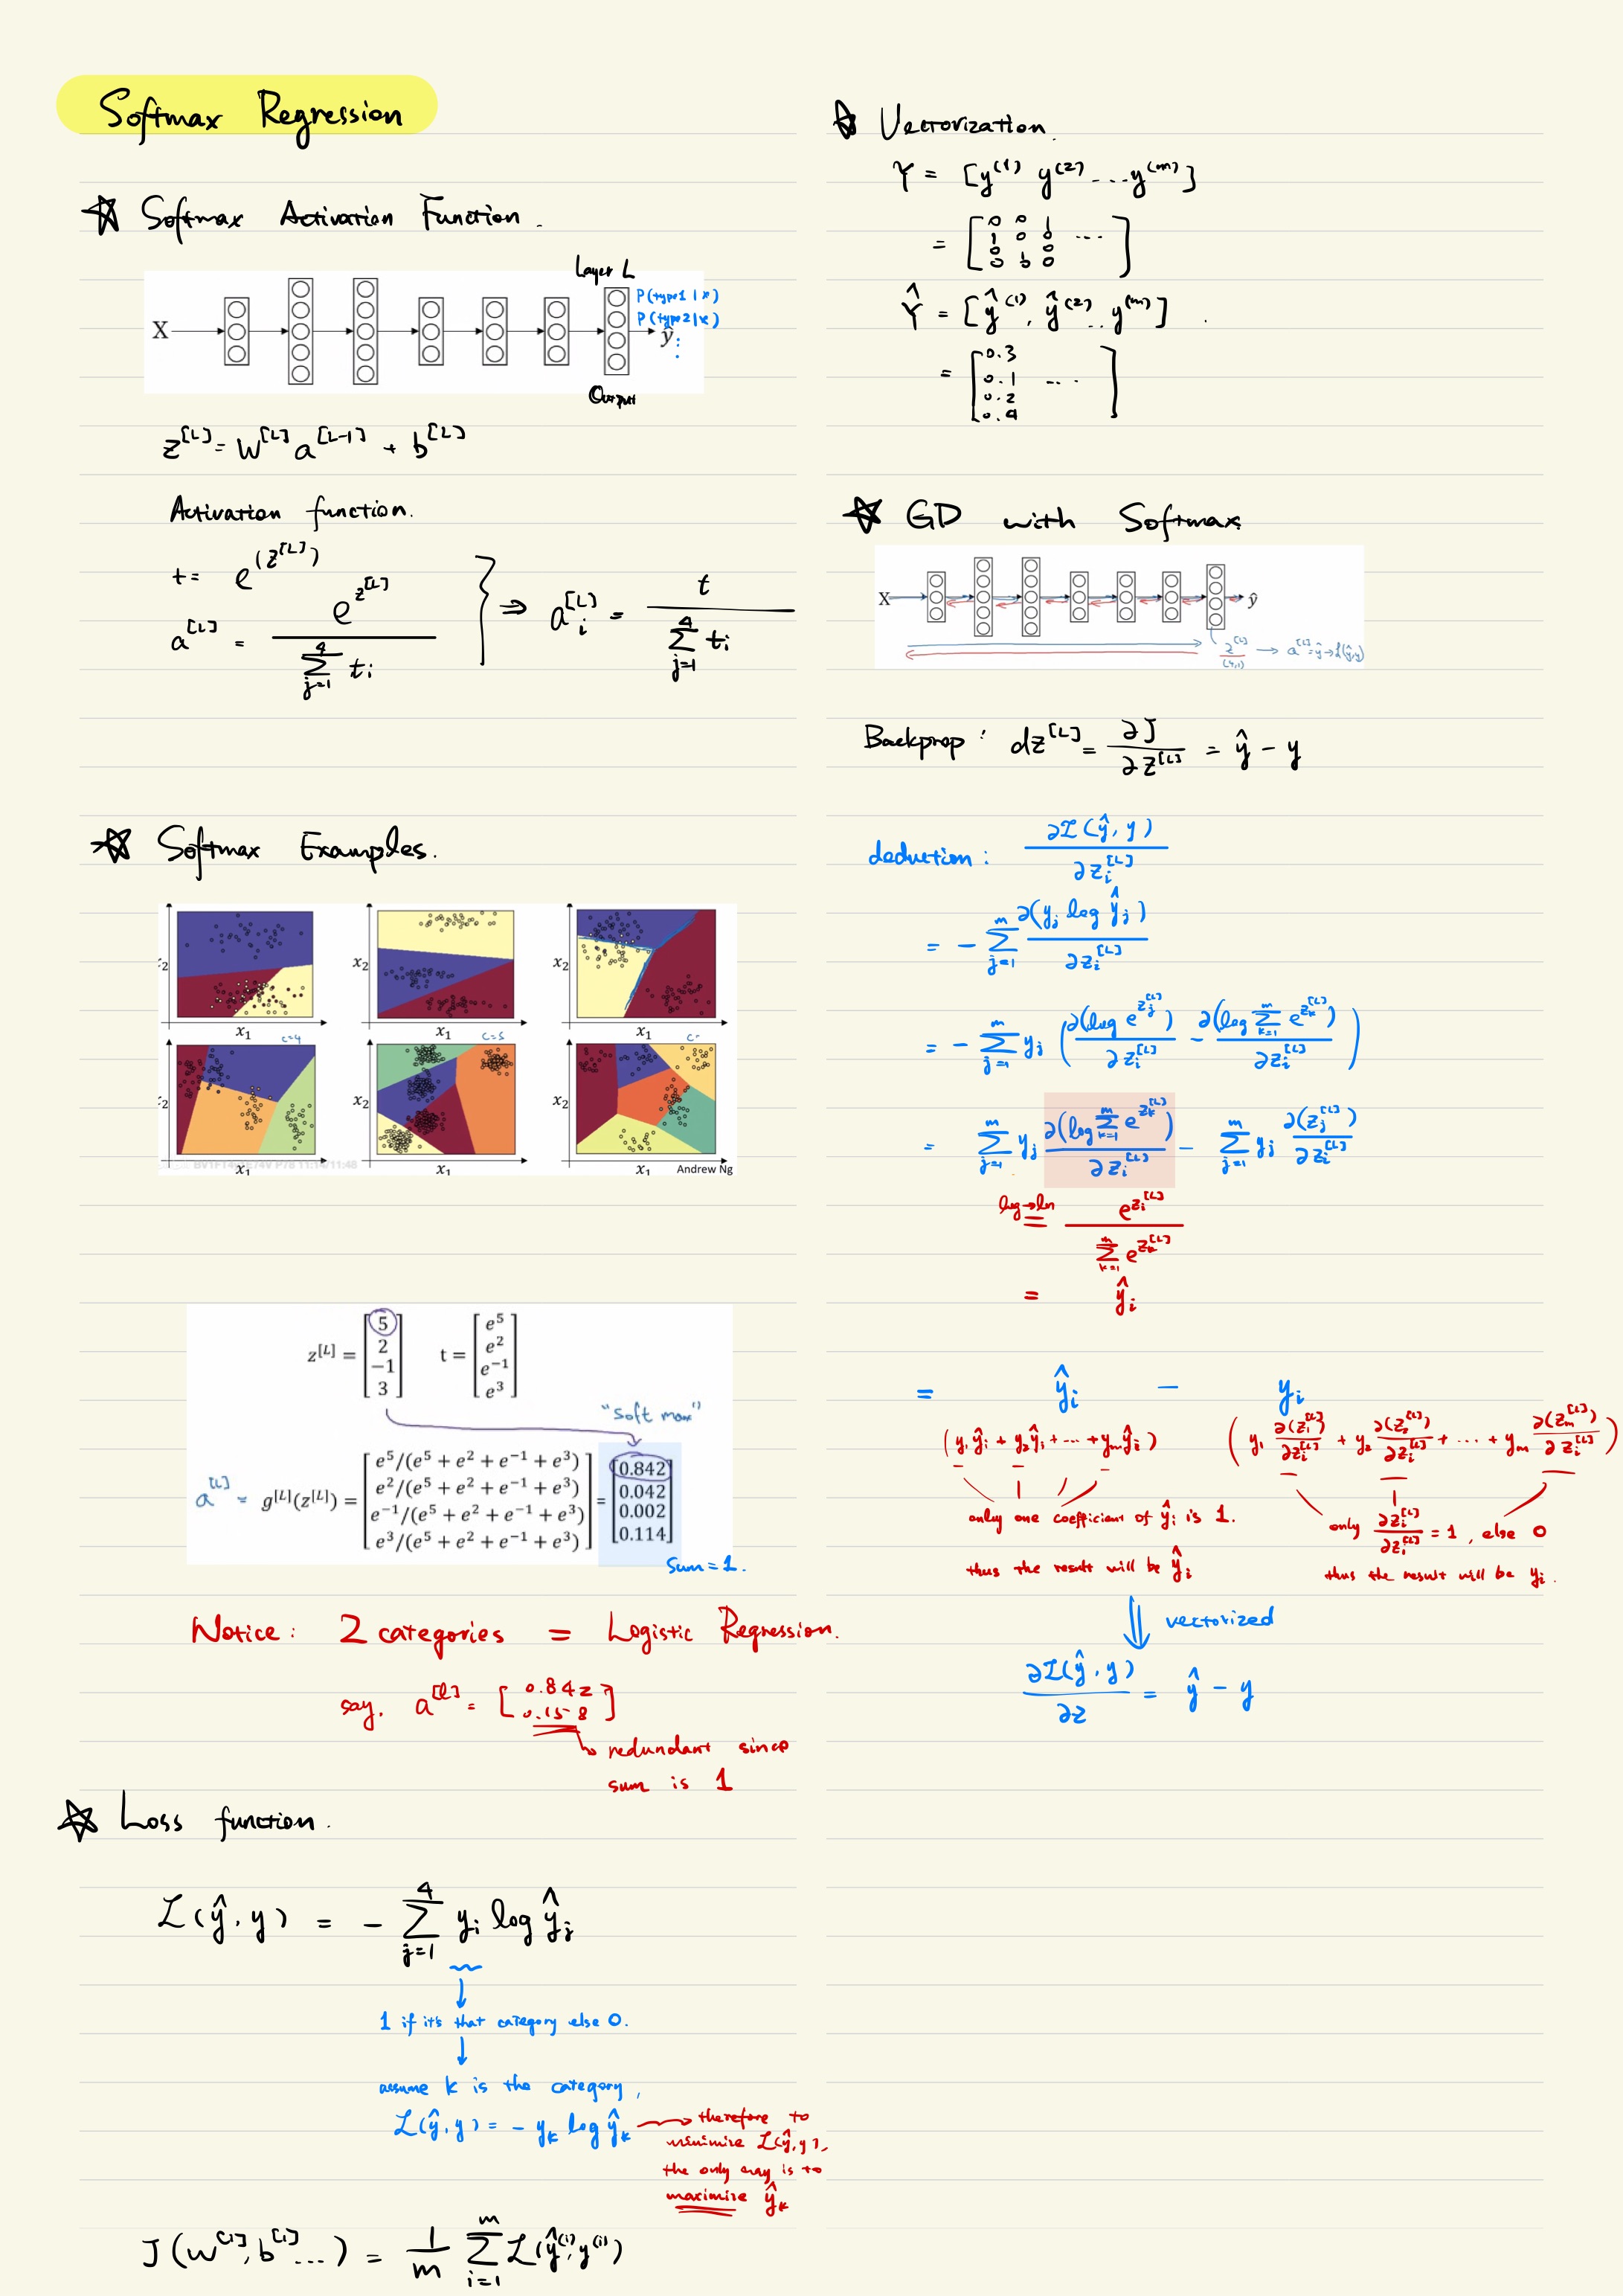 Softmax Regression
☆ Softmax Activation Function.
Layer L
P(type1|x)
P(type2|x)
X
ŷ
⋮
Output
z^[L] = W^[L] a^[L-1] + b^[L]
Activation function.
t = e^(z^[L])
a^[L] = e^z^[L] / Σ_{j=1}^4 t_i } ⇒ a_i^[L] = t / Σ_{j=1}^4 t_i
☆ Softmax Examples.
x₂ x₂ x₂
x₁ x₁ x₁
C=4 C=5 C=
x₂ x₂ x₂
x₁ x₁ x₁
Andrew Ng
z^[L] = [5 2 −1 3] t = [e^5 e^2 e^−1 e^3]
"soft max"
a^[L] = g^[L](z^[L]) = [
e^5/(e^5 + e^2 + e^−1 + e^3)
e^2/(e^5 + e^2 + e^−1 + e^3)
e^−1/(e^5 + e^2 + e^−1 + e^3)
e^3/(e^5 + e^2 + e^−1 + e^3)
] = [0.842 0.042 0.002 0.114]
Sum = 1.
Notice: 2 categories = Logistic Regression.
say, a^[l] = [0.842 0.158]
redundant since
sum is 1
☆ Loss function.
L(ŷ, y) = − Σ_{j=1}^4 y_i log ŷ_j
1 if it's that category else 0.
assume k is the category,
L(ŷ, y) = − y_k log ŷ_k → therefore to
minimize L(ŷ, y),
the only way is to
maximize ŷ_k
J(w^[1], b^[1] ...) = 1/m Σ_{i=1}^m L(ŷ^(i), y^(i))
☆ Vectorization.
Y = [y^(1) y^(2) ... y^(m)]
= [
0 0 1
1 0 0 ...
0 0 0
0 1 0
]
Ŷ = [ŷ^(1), ŷ^(2) .. y^(m)]
= [
0.3
0.1 ...
0.2
0.4
]
☆ GD with Softmax
X
ŷ
z^[L] → a^[L] = ŷ → L(ŷ, y)
(4,1)
Backprop: dz^[L] = ∂J/∂z^[L] = ŷ − y
deduction: ∂L(ŷ, y)/∂z_i^[L]
= − Σ_{j=1}^m ∂(y_j log ŷ_j)/∂z_i^[L]
= − Σ_{j=1}^m y_j (∂(log e^z_j^[L])/∂z_i^[L] − ∂(log Σ_{k=1}^m e^z_k^[L])/∂z_i^[L])
= Σ_{j=1}^m y_j ∂(log Σ_{k=1}^m e^z_k^[L])/∂z_i^[L] − Σ_{j=1}^m y_j ∂(z_j^[L])/∂z_i^[L]
log→ln
= e^z_i^[L] / Σ_{k=1}^m e^z_k^[L]
= ŷ_i
= ŷ_i − y_i
(y₁ŷ_i + y₂ŷ_i + ... + y_mŷ_i) (y₁ ∂(z₁^[L])/∂z_i^[L] + y₂ ∂(z₂^[L])/∂z_i^[L] + ... + y_m ∂(z_m^[L])/∂z_i^[L])
only one coefficient of ŷ_i is 1.
thus the result will be ŷ_i
only ∂z_i^[L]/∂z_i^[L] = 1, else 0
thus the result will be y_i.
⇓ vectorized
∂L(ŷ, y)/∂z = ŷ − y